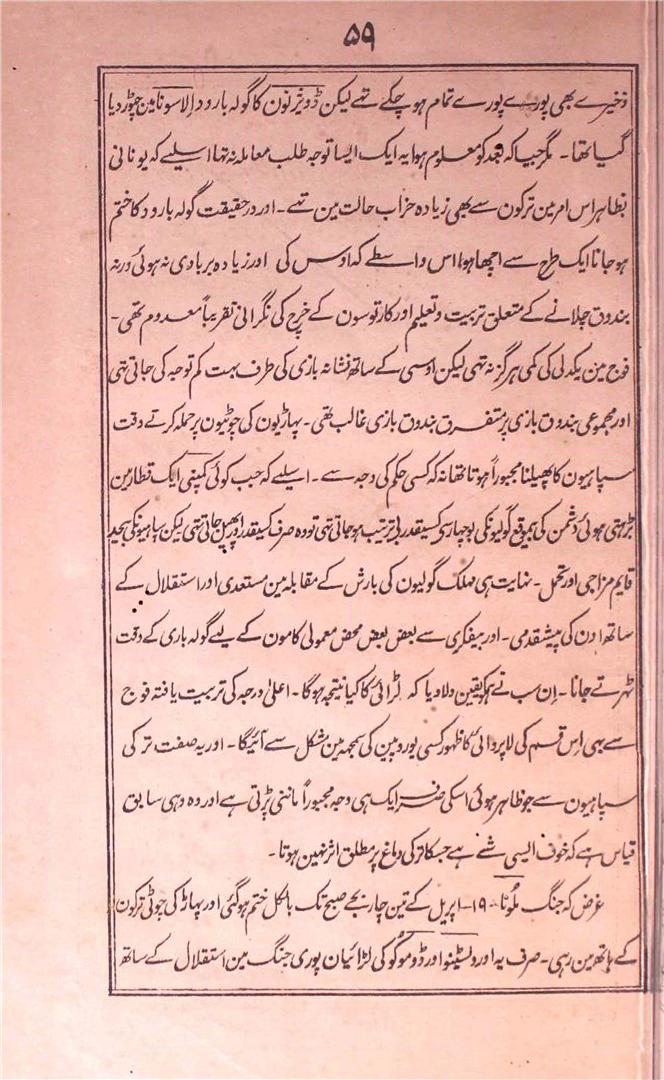 ۵۹
ذخیرے بھی پورے پورے تمام ہو چکے تہے لیکن ڈویژنون کا گولہ بارود الاسونا مین چھوڑ دیا
گیا تھا۔ مگر جیسا کہ بعد کو معلوم ہوا یہ ایک ایسا توجہ طلب معاملہ نہ تہا اسلیے کہ یونانی
بظاہر اس امر مین ترکون سے بھی زیادہ خراب حالت مین تہے۔ اور در حقیقت گولہ بارود کا ختم
ہو جانا ایک طرح سے اچھا ہوا اس واسطے کہ اوس کی اور زیادہ بربادی نہ ہوئی ورنہ
بندوق چلانے کے متعلق تربیت و تعلیم اور کارتوسون کے خرچ کی نگرانی تقریباً معدوم تھی۔
فوج مین یکدلی کی کمی ہرگز نہ تہی لیکن اوسی کے ساتھ نشانہ بازی کی طرف بہت کم توجہ کی جاتی تہی
اور مجموعی بندوق بازی پر متفرق بندوق بازی غالب تھی۔ پہاڑیون کی چوٹیون پر حملہ کرتے وقت
سپاہیون کا پھیلنا مجبوراً ہوتا تھا نہ کہ کسی حکم کی وجہ سے۔ اسلیے کہ جب کوئی کمپنی ایک قطار مین
بڑہتی ہوئی دشمن کی بیموقع گولیونکی بوچھار سے کسیقدر بے ترتیب ہو جاتی تہی تو وہ صرف کسیقدر اور پھیل جاتی تہی لیکن سپاہیونکی بیحد
قایم مزاجی اور تحمل۔ نہایت ہی مہلک گولیون کی بارش کے مقابلہ مین مستعدی اور استقلال کے
ساتھ اون کی پیشقدمی۔ اور بیفکری سے بعض بعض محض معمولی کامون کے لیے گولہ باری کے وقت
ٹہرتے جانا۔ اِن سب نے ہمکو یقین دلا دیا کہ لڑائی کا کیا نتیجہ ہوگا۔ اعلیٰ درجہ کی تربیت یافتہ فوج
سے بہی اِس قسم کی لاپروائی کا ظہور کسی یوروپین کی سمجہہ مین مشکل سے آئیگا۔ اور یہ صفت ترکی
سپاہیون سے جو ظاہر ہوئی اسکی صرف ایک ہی وجہ مجبوراً ماننی پڑتی ہے اور وہ وہی سابق
قیاس ہے کہ خوف ایسی شئے ہے جسکا ترکی دماغ پر مطلق اثر نہین ہوتا۔
غرض کہ جنگ ملُونا ۱۹- اپریل کے تین چار بجے صبح تک بالکل ختم ہو گئی اور پہاڑ کی چوٹی ترکون
کے ہاتھ مین رہی۔ صرف یہ اور ولسٹینو اور ڈوموکو کی لڑائیان پوری جنگ مین استقلال کے ساتھ